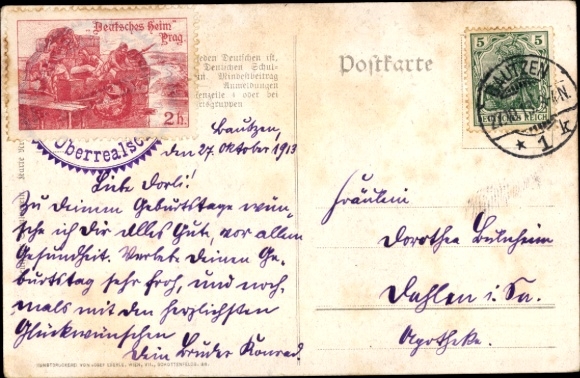 "Deutsches Heim"
Prag.
2 h.
jeden Deutschen ist,
Deutschen Schul-
Mindestbeitrag
Anmeldungen
4 oder bei
Ortsgruppen
Oberreals
Postkarte
5 5
DEUTSCHES REICH
BAUTZEN
* 1 k
Bautzen,
den 27. Oktober 1913
Liebe Dorli!
Zu deinem Geburtstage wün-
sche ich dir alles Gute, vor allem
Gesundheit. Verlebe deinen Ge-
burtstag sehr froh, und noch-
mals mit den herzlichsten
Glückwünschen
dein Bruder Konrad.
Fräulein
Dorothea
Dahlen i. Sa.
Apotheke.